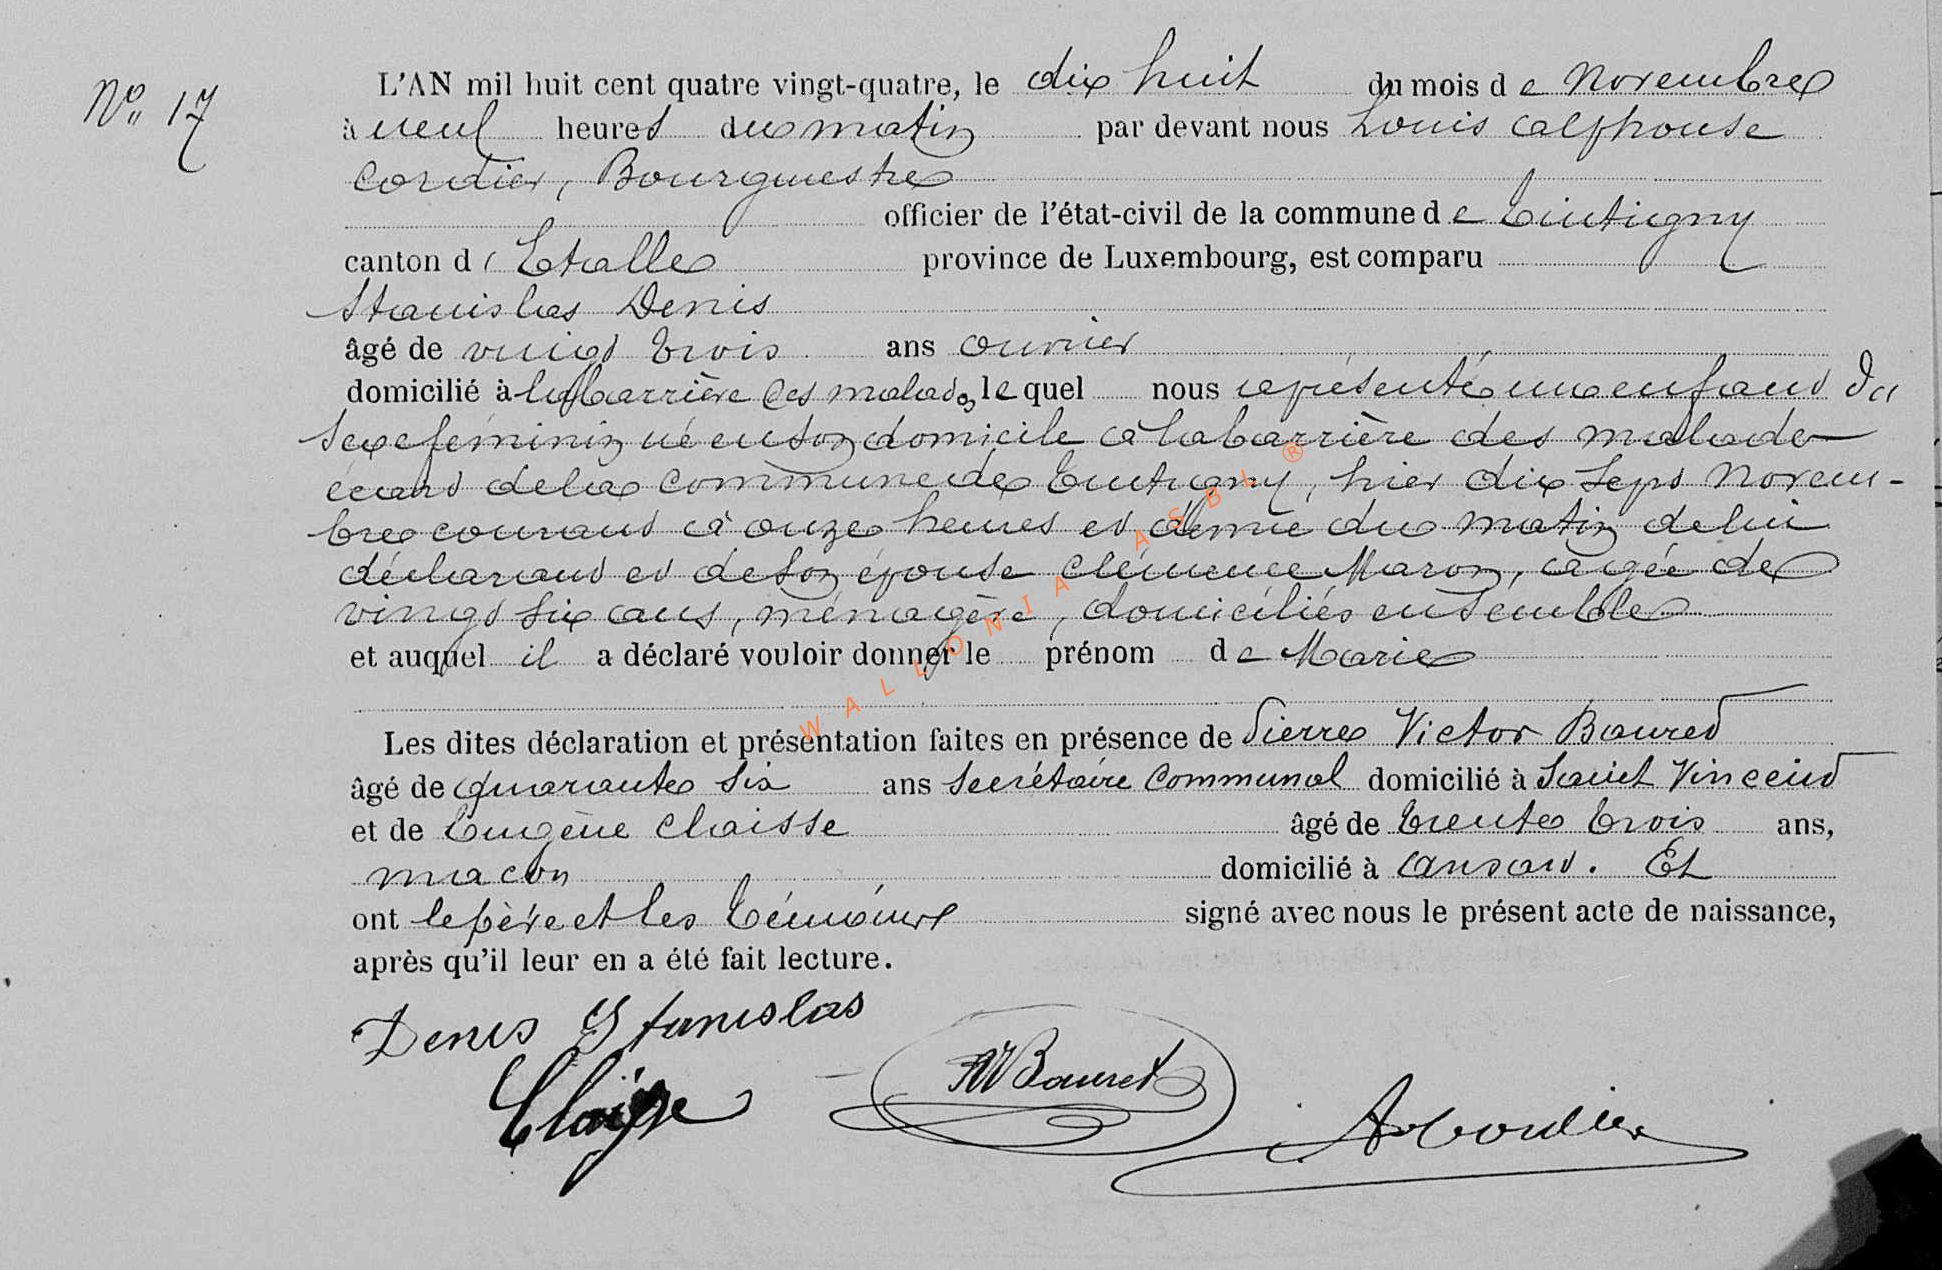 N° 17
L'AN mil huit cent quatre vingt-quatre, le dix huit du mois de Novembre
à neuf heures du matin par devant nous Louis Alphonse
Cordier, Bourgmestre
officier de l'état-civil de la commune de Tintigny
canton d'Etalle province de Luxembourg, est comparu
Stanislas Denis
âgé de vingt trois ans ouvrier
domicilié à la barrière des malades lequel nous a présenté un enfant du
sexe féminin né en son domicile à la barrière des malades
écart de la commune de Tintigny, hier dix sept Novem-
bre courant à onze heures et demie du matin de lui
déclarant et de son épouse Clémence Maron, agée de
vingt six ans, ménagère, domiciliés ensemble
et auquel il a déclaré vouloir donner le prénom de Marie
Les dites déclaration et présentation faites en présence de Pierre Victor Bauret
âgé de quarante six ans secrétaire communal domicilié à Saint Vincent
et de Eugène Claisse âgé de trente trois ans,
macon domicilié à Ansart. Et
ont le père et les témoins signé avec nous le présent acte de naissance,
après qu'il leur en a été fait lecture.
Denis Stanislas
Claisse Bauret Cordier
WALLONIA ASBL ®